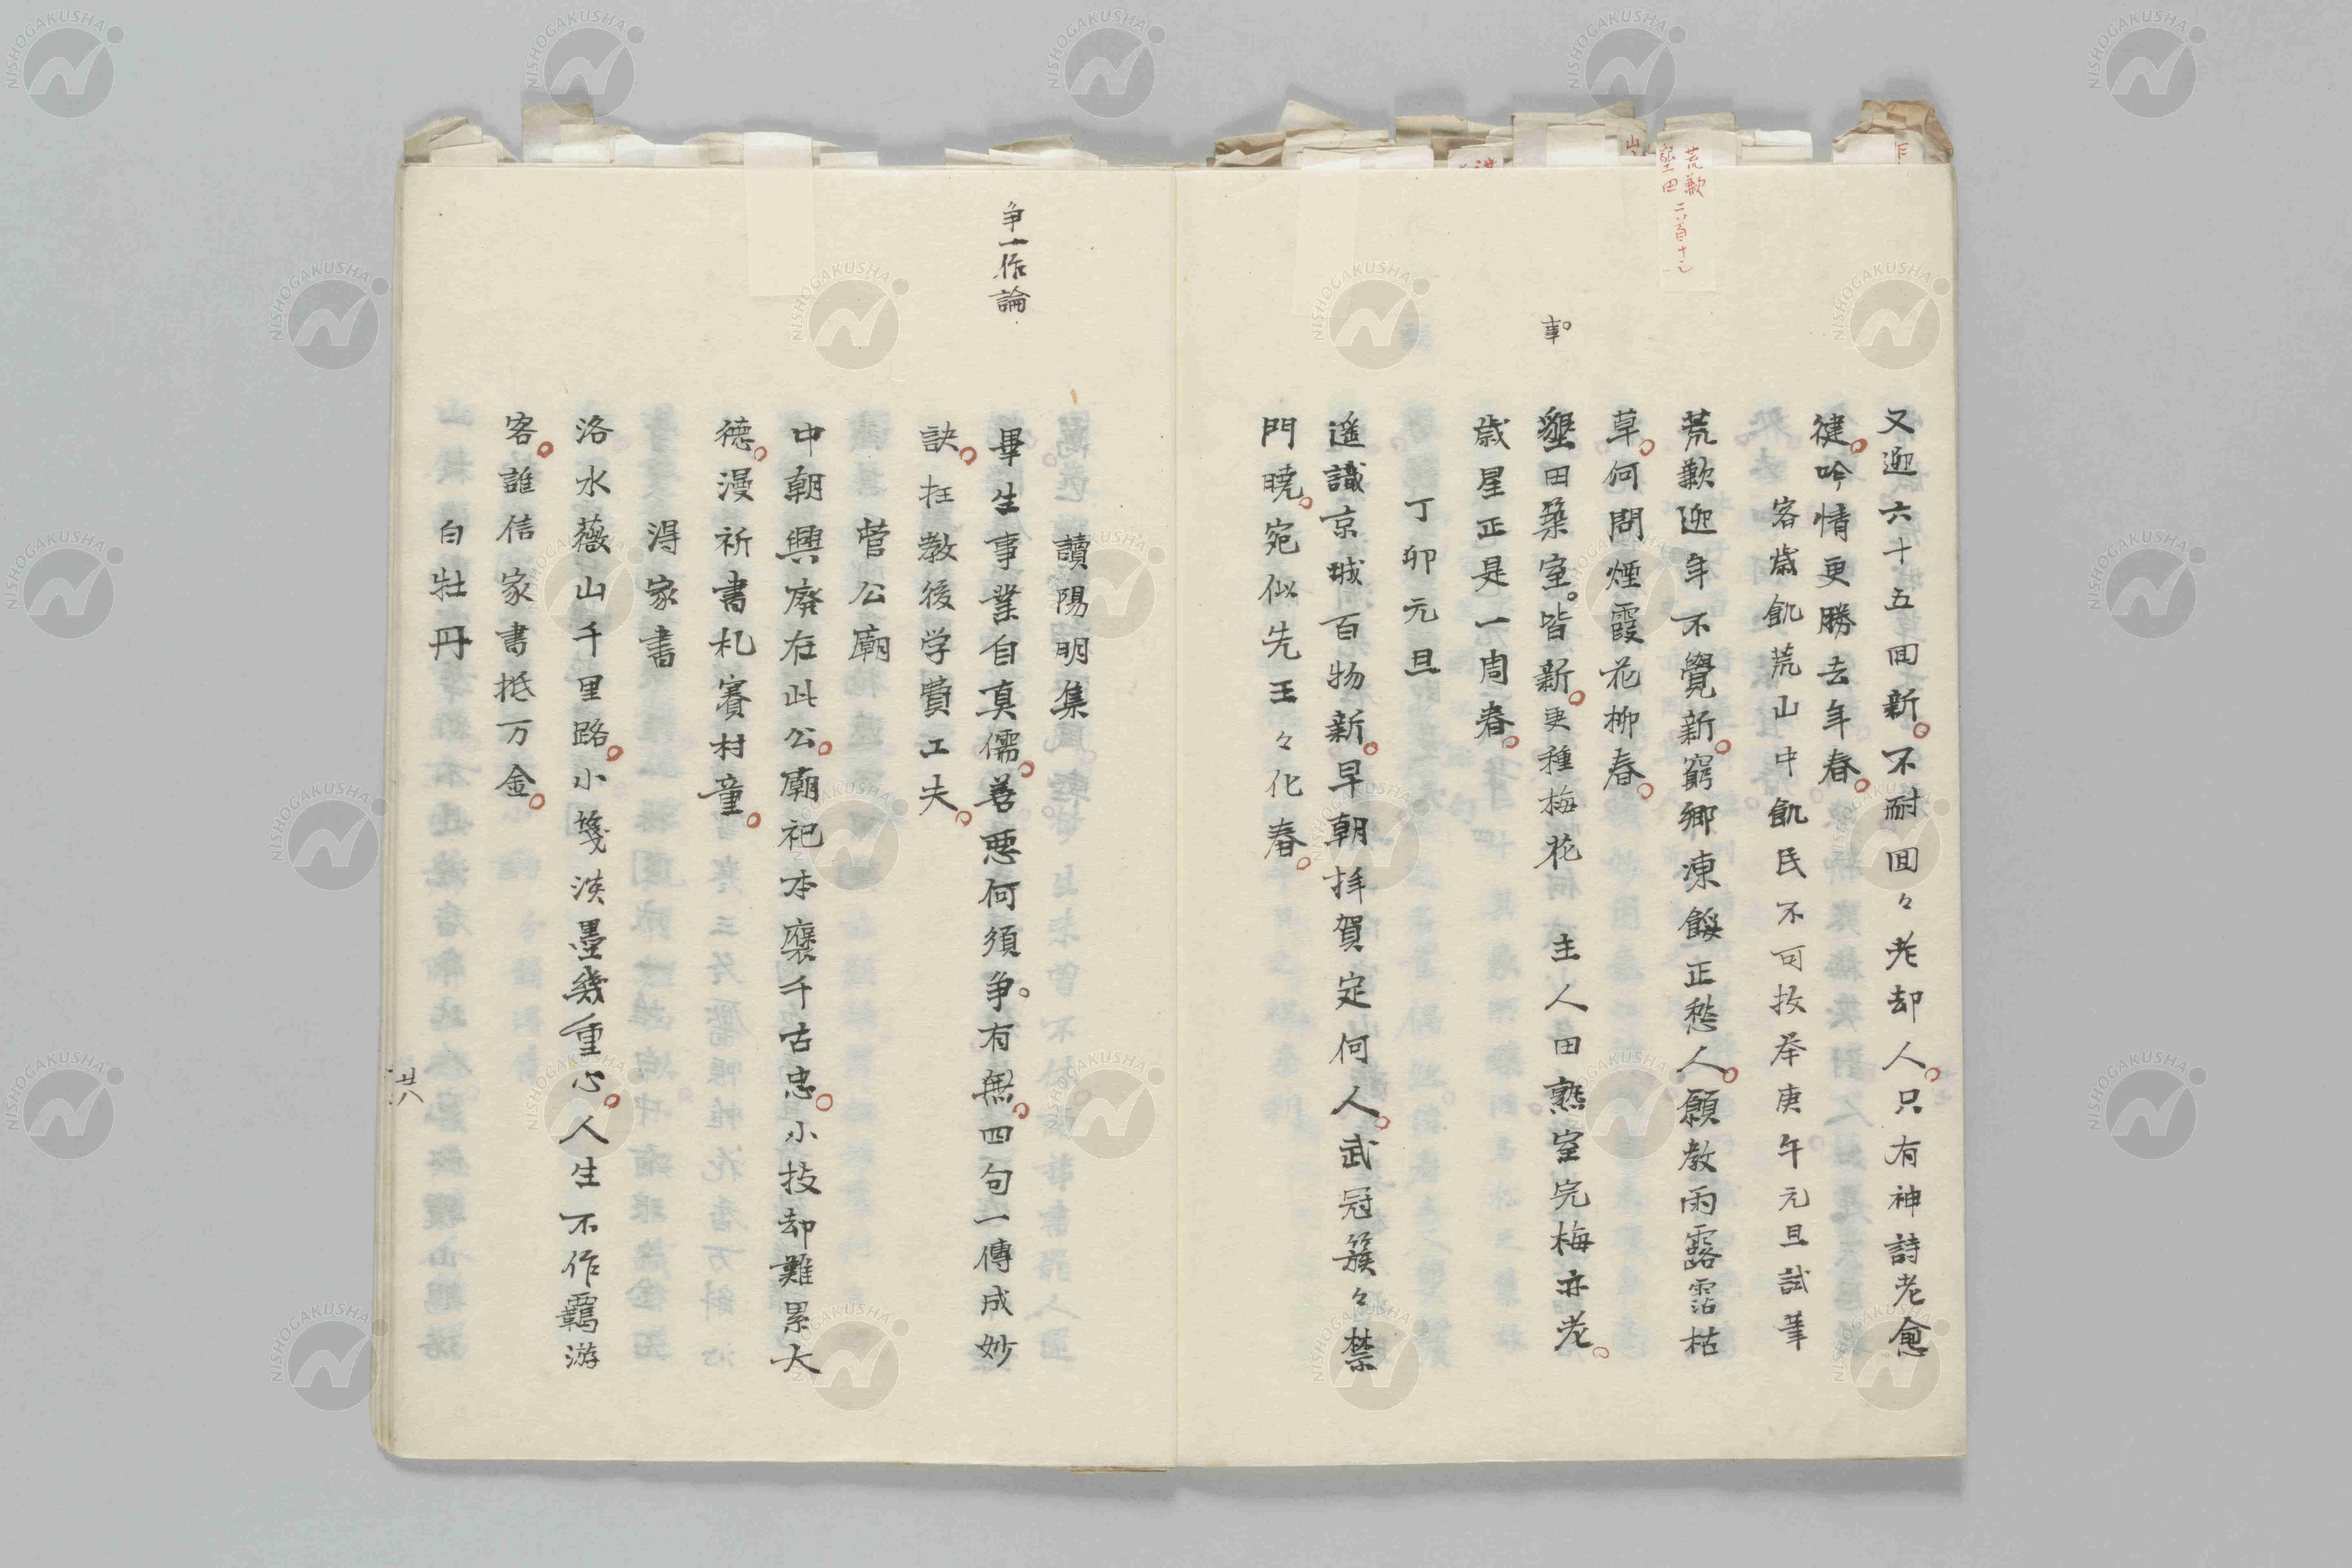 又迎六十五回新不耐回々老却人只有神詩老愈
健吟情更勝去年春
客歳飢荒山中飢民不可枚挙庚午元旦試筆
荒歉迎年不覺新窮郷凍餒正愁人願教雨露霑枯
草何問煙霞花柳春
事
墾田築室皆新更種梅花 主人田熟室完梅亦老
歳星正是一周春
丁卯元旦
遥識京城百物新早朝拝賀定何人武冠簇々禁
門暁宛似先王々化春
荒歉
墾田
讀陽明集
争一作論
畢生事業自真儒善悪何須争有無四句一傳成妙
訣枉教後学費工夫
菅公廟
中朝興廃在此公廟祀本褒千古忠小技却難累大
徳漫祈書札賽村童
得家書
洛水薇山千里路小箋淡墨幾重心人生不作羈游
客誰信家書抵万金
白牡丹
廿八
NISHOGAKUSHA